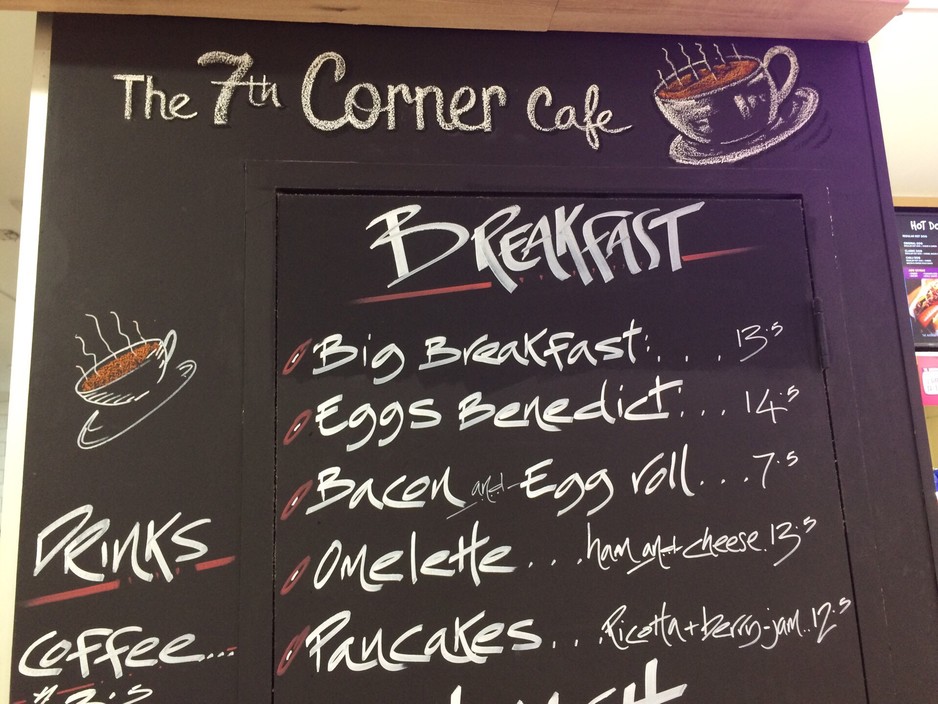 The 7th Corner Cafe
BREAKFAST
Big Breakfast: . . . 13.5
Eggs Benedict: . . . 14.5
Bacon and Egg roll . . . 7.5
Omelette . . . ham and cheese . 13.5
Pancakes . . . Ricotta + berry-jam . . 12.5
DRINKS
Coffee...
HOT DO